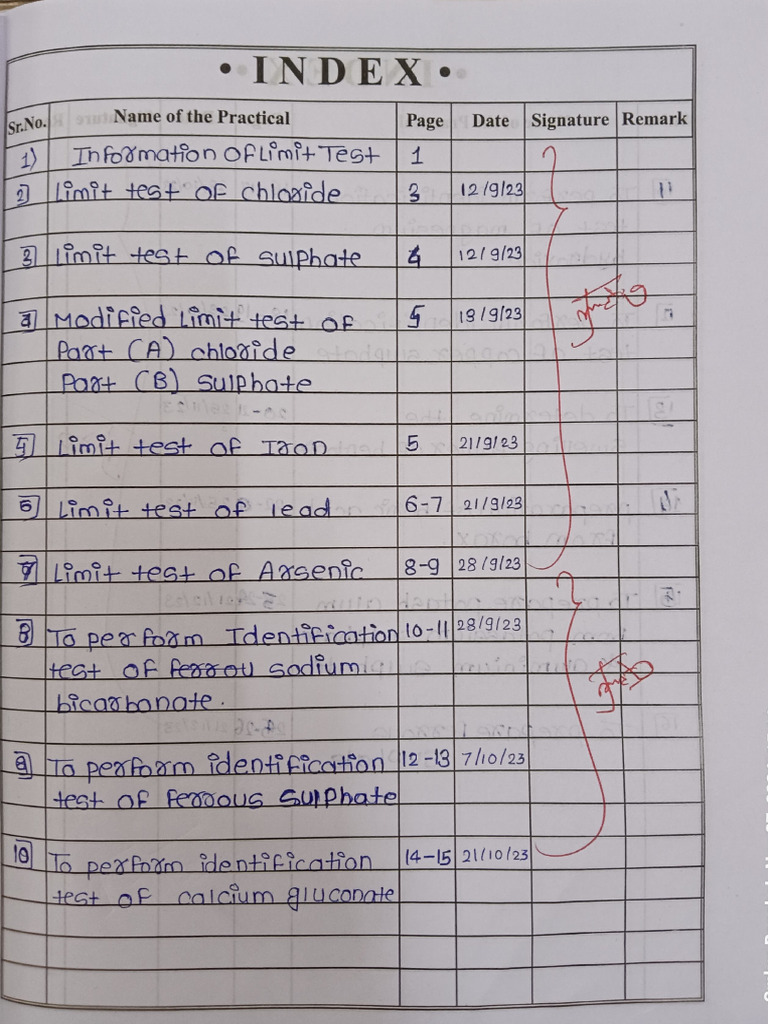 • INDEX •
Sr.No. Name of the Practical Page Date Signature Remark
1) Information Of Limit Test 1
2) Limit test of chloride 3 12/9/23
3) Limit test of sulphate 4 12/9/23
4) Modified Limit test of 5 19/9/23
Part (A) chloride
Part (B) sulphate
5) Limit test of Iron 5 21/9/23
6) Limit test of lead 6-7 21/9/23
7) Limit test of Arsenic 8-9 28/9/23
8) To perform Identification 10-11 28/9/23
test of ferrou sodium
bicarbonate.
9) To perform identification 12-13 7/10/23
test of ferrous sulphate
10) To perform identification 14-15 21/10/23
test of calcium gluconate